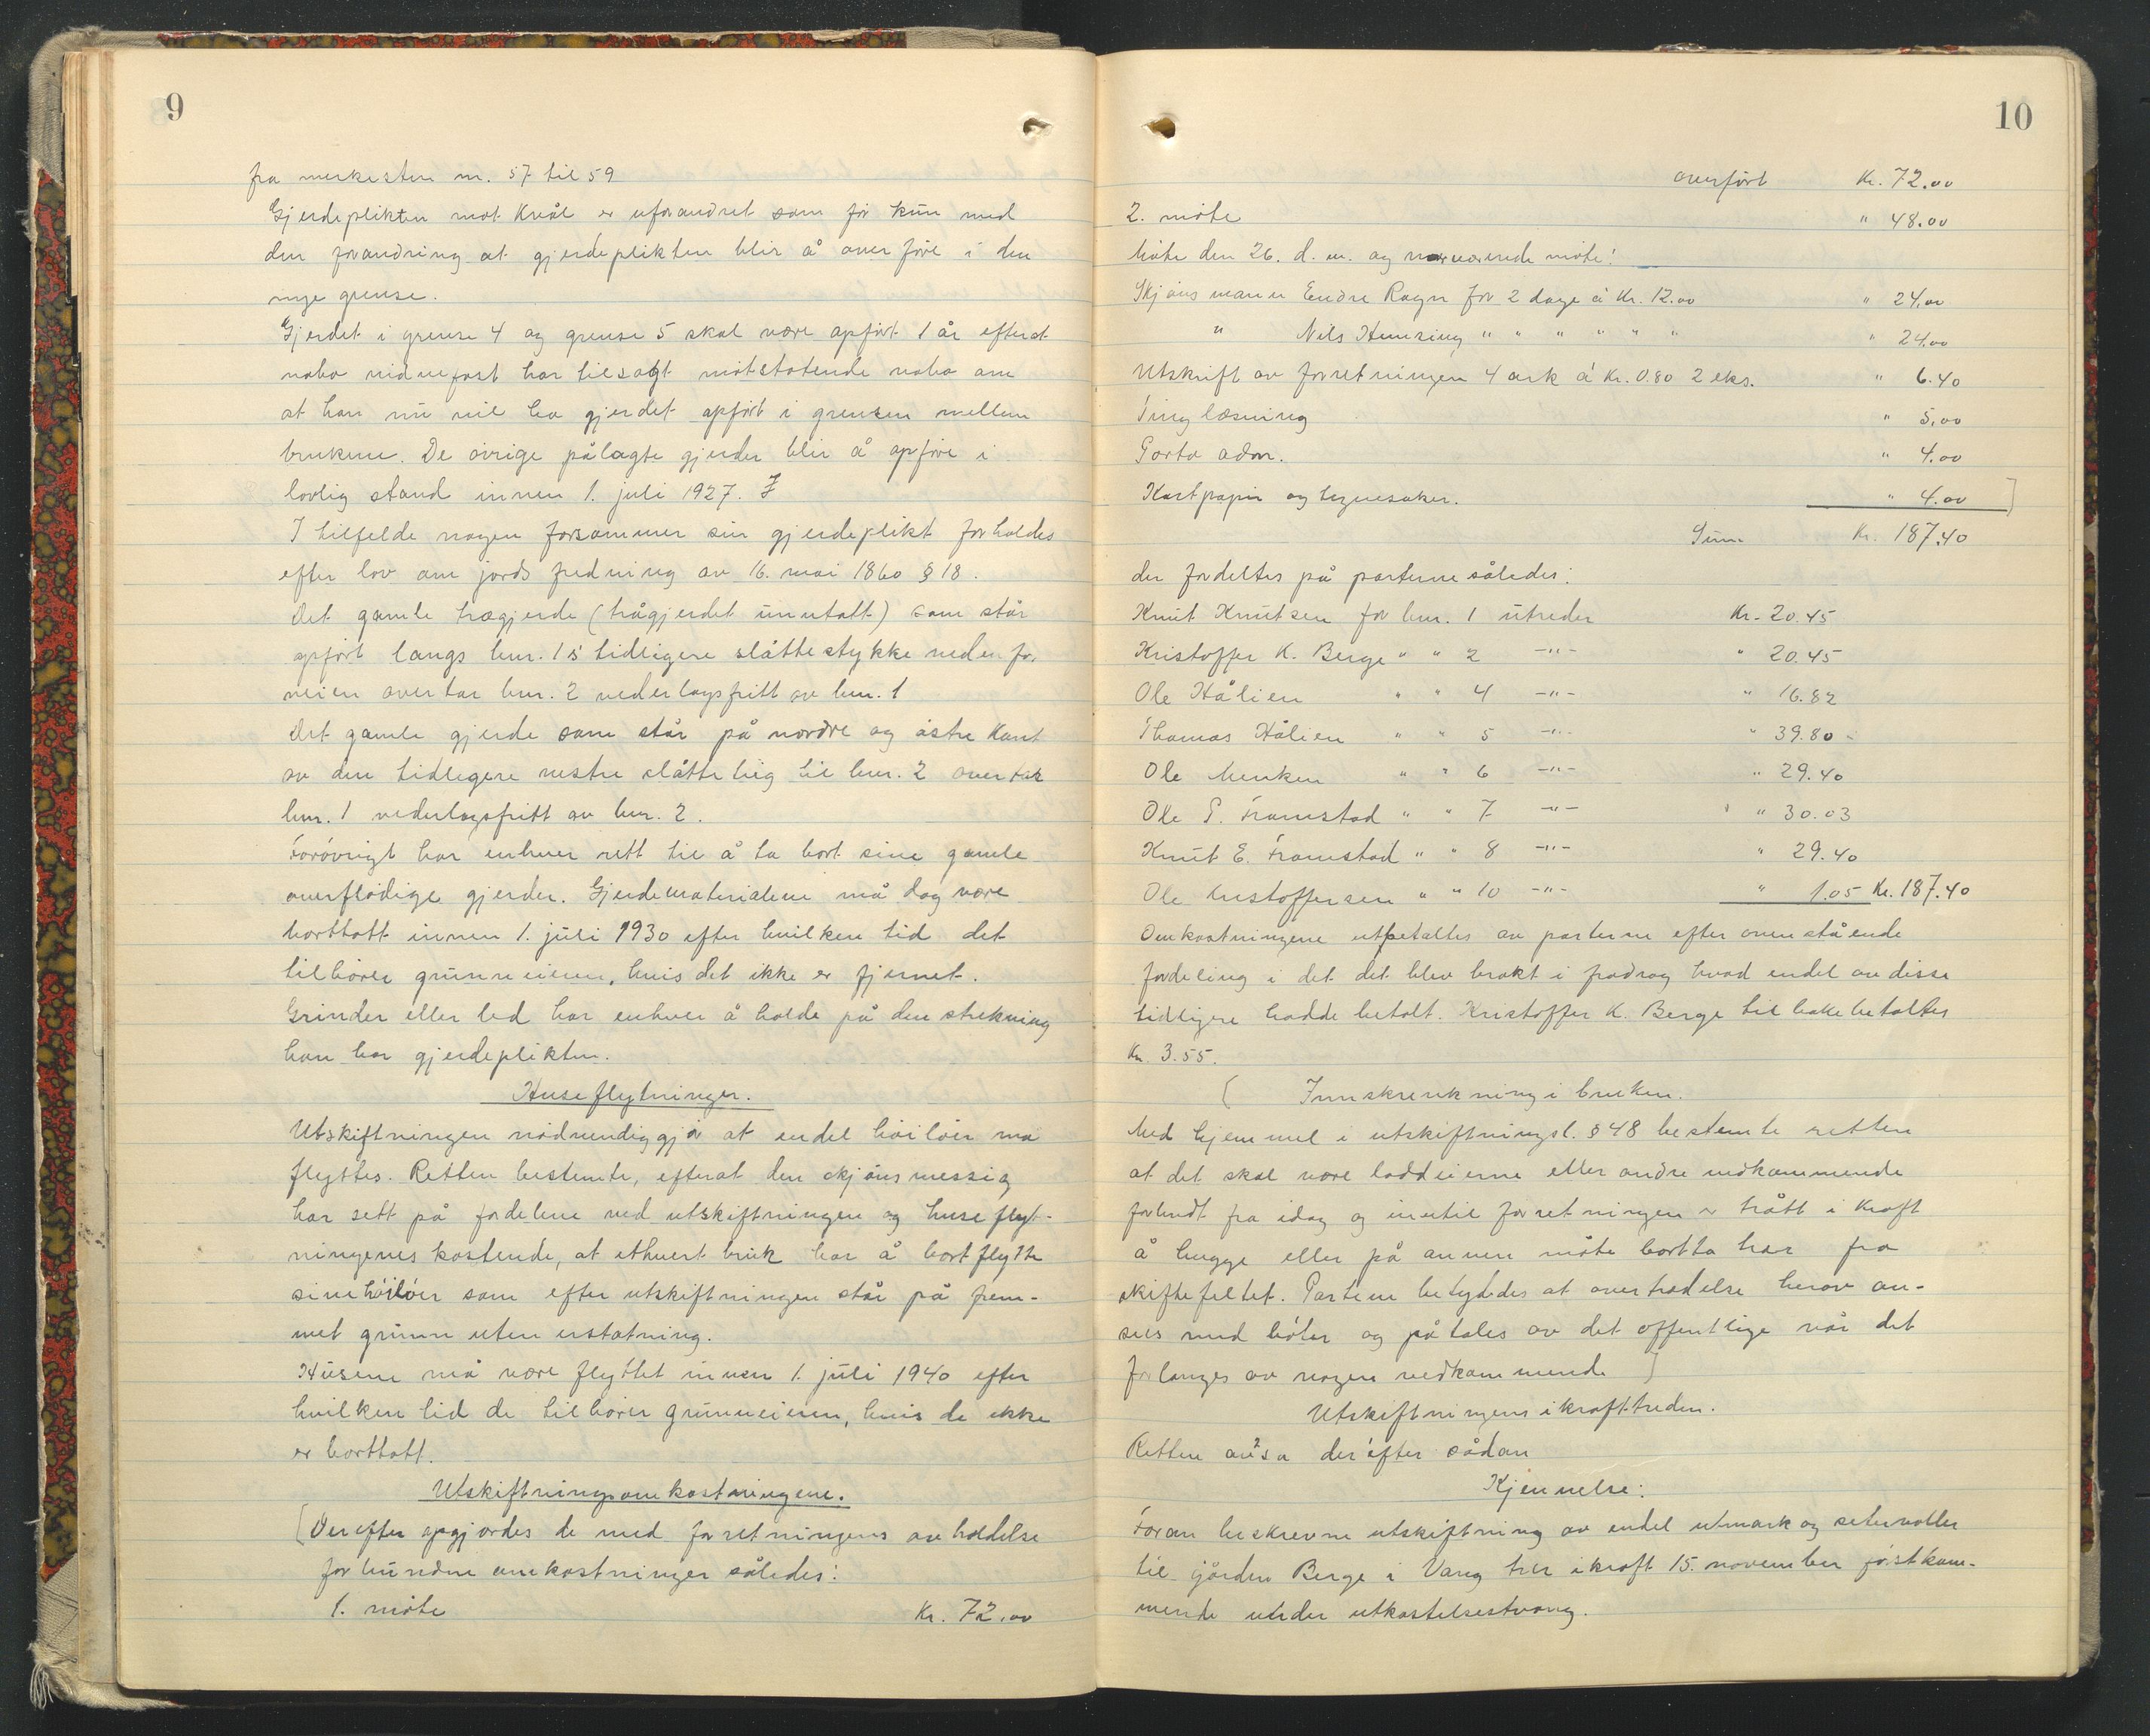 9
fra merkesten nr. 57 til 59
Gjerdeplikten mot Kvål er uforandret som för kun med
den forandring at gjerdeplikten blir å overföre i den
nye grense.
Gjerdet i grense 4 og grense 5 skal være opfört 1 år efterat
nabo vidnefast har tilsagt motstötende nabo om
at han nu vil ha gjerdet opfört i grensen mellem
brukene. De övrige pålagte gjerder blir å opföre i
lovlig stand innen 1. juli 1927.
I tilfelde nogen forsömmer sin gjerdeplikt forholdes
efter lov om jords fredning av 16. mai 1860 § 18.
Det gamle trægjerde (trågjerdet unntatt) som står
opfört langs bnr. 1s tidligere slåttestykke nedenfor
veien overtar bnr. 2 vederlagsfritt av bnr. 1
Det gamle gjerde som står på nordre og östre kant
av den tidligere vestre slåtteteig til bnr. 2 overtar
bnr. 1 vederlagsfritt av bnr. 2.
Forövrigt har enhver rett til å ta bort sine gamle
overflödige gjerder. Gjerdematerialene må dog være
borttatt innen 1. juli 1930 efter hvilken tid det
tilhörer grunneieren, hvis det ikke er fjernet.
Grinder eller led har enhver å holde på den strekning
han har gjerdeplikten.
Huseflytninger.
Utskiftningen nödvendiggjör at endel höilöer må
flyttes. Retten bestemte, efterat den skjönsmessig
har sett på fordelene ved utskiftningen og huseflyt-
ningenes kostende, at ethvert bruk har å bortflytte
sine höilöer som efter utskiftningen står på frem-
met grunn uten erstatning.
Husene må være flyttet innen 1. juli 1940 efter
hvilken tid de tilhörer grunneieren, hvis de ikke
er borttatt.
Utskiftningsomkostningene.
[Derefter opgjordes de med forretningens avholdelse
forbundne omkostninger således:
1. möte Kr. 72.00
10
overfört Kr. 72.00
2. möte " 48.00
Möte den 26. d.m. og nærværende möte:
Skjönsmann Endre Rogn for 2 dage á Kr. 12.00 " 24.00
" Nils Hemsing " " " " " " " 24.00
Utskrift av forretningen 4 ark á Kr. 0.80 2 eks. " 6.40
Tinglæsning " 5.00
Porto adm. " 4.00
Kartpapir og tegnesaker. " 4.00 ]
Sum Kr. 187.40
der fordeltes på parterne således:
Knut Knutsen for bnr. 1 utreder Kr. 20.45
Kristoffer K. Berge " " 2 -"- " 20.45
Ole Hålien " " 4 -"- " 16.82
Thomas Hålien " " 5 -"- " 39.80
Ole Menken " " 6 -"- " 29.40
Ole P. Framstad " " 7 -"- " 30.03
Knut E. Framstad " " 8 -"- " 29.40
Ole Kristoffersen " " 10 -"- " 1.05 Kr. 187.40
Omkostningene utbetaltes av parterne efter ovenstående
fordeling i det det blev brakt i fradrag hvad endel av disse
tidligere hadde betalt. Kristoffer K. Berge tilbakebetaltes
Kr. 3.55.
( Innskrenkning i bruken.
Med hjemmel i utskiftningsl. § 48 bestemte retten
at det skal være loddeierne eller andre vedkommende
forbudt fra idag og inntil forretningen er trått i kraft
å hugge eller på annen måte bortta trær fra
skiftefeltet. Partene betydedes at overtrædelse herav an-
sees med böter og påtales av det offentlige når det
forlanges av nogen vedkommende ]
Utskiftningens ikrafttreden.
Retten avsa derefter sådan
Kjennelse:
Foran beskrevne utskiftning av endel utmark og setervoller
til gården Berge i Vang trer ikraft 15. november förstkom-
mende under utkastelsestvang.